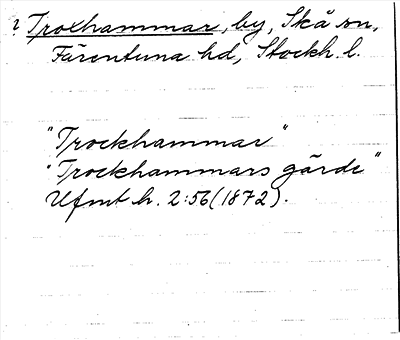 ? Troxhammar, by, Skå sn,
Färentuna hd, Stockh. l.
"Trockhammar"
"Trockhammars gärde"
Ufmt h. 2:56 (1872).